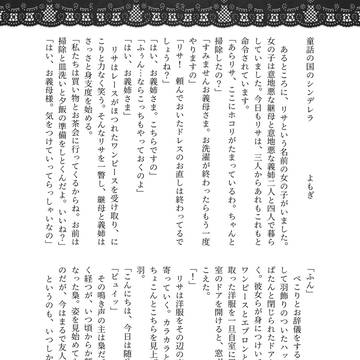 童話の国のシンデレラ
よもぎ
あるところに、リサという名前の女の子がいました。
女の子は意地悪な継母と意地悪な義姉二人と四人で暮ら
していました。今日もリサは、三人からあれもこれもと
命令されています。
「あらリサ、ここにホコリがたまっているわ。ちゃんと
掃除したの？」
「すみませんお義母さま。お洗濯が終わったらもう一度
やりますの」
「リサ！　頼んでおいたドレスのお直しは終わってるで
しょうね？」
「はい、お義姉さま。こちらですの」
「ふぅん…ならこっちもやっておくのよ」
「はい、お義姉さま」
リサはレースがほつれたワンピースを受け取り、に
こりと力なく笑う。そんなリサを一瞥し、継母と義姉は
さっさと身支度を始める。
「私たちは買い物とお茶会に行ってくるからね。お前は
掃除と皿洗いと夕飯の準備をしとくんだよ。いいね？」
「はい、お義母様。気をつけていってらっしゃいなの」
「ふん」
ぺこりとお辞儀をする
して羽飾りのついたハ
ぱたんと閉じられたドア
く。彼女らが身につけい
ワンピースとエプロンと
取った洋服を一旦自室に
室のドアを開けると、窓に
こえた。
「！」
リサは洋服をその辺の
寄っていく。カラカラと
ちょこんとこちらを見上
羽。
「こんにちは、今日は随
「ピュイッ」
その鳴き声の主は梟だ。
く経つが、いつ頃からか
なった梟。姿を見始めて
のだが、今はまるで友人
というのも、いつしか